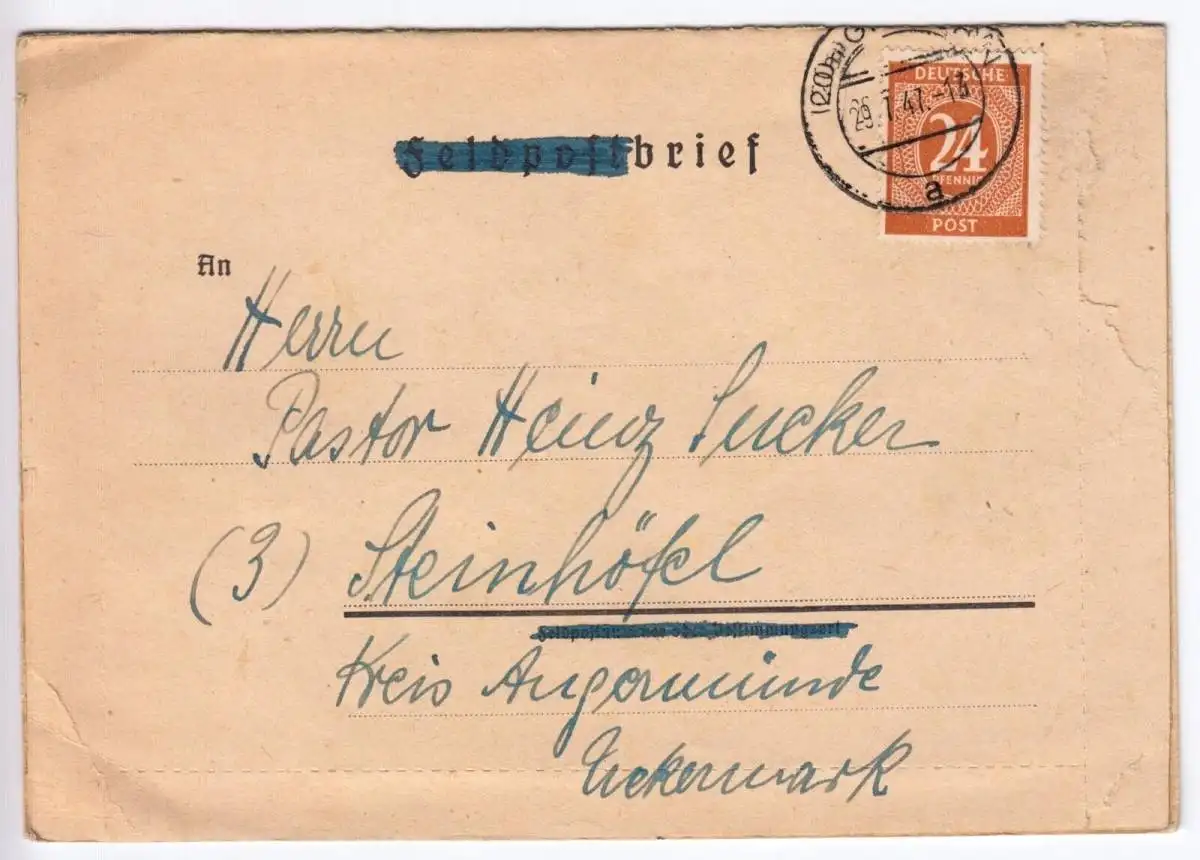 Feldpostbrief
DEUTSCHE
24
PFENNIG
POST
29.7.47.-18
a
An
Herrn
Pastor Heinz Sucker
(3) Steinhöfel
Feldpostnummer oder Bestimmungsort
Kreis Angermünde
Uckermark